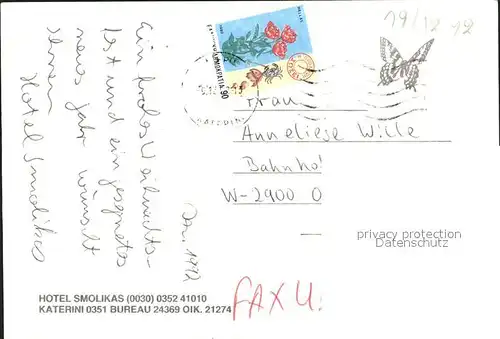 Ein frohes Weihnachts-
fest und ein gesegnetes
neues Jahr wünscht
Ihnen
Hotel Smolikas
Dez. 1992
19/12 92
HELLAS
90
Frau
Anneliese Wille
Bahnho
W-2900 O
privacy protection
Datenschutz
FAX U.
HOTEL SMOLIKAS (0030) 0352 41010
KATERINI 0351 BUREAU 24369 OIK. 21274